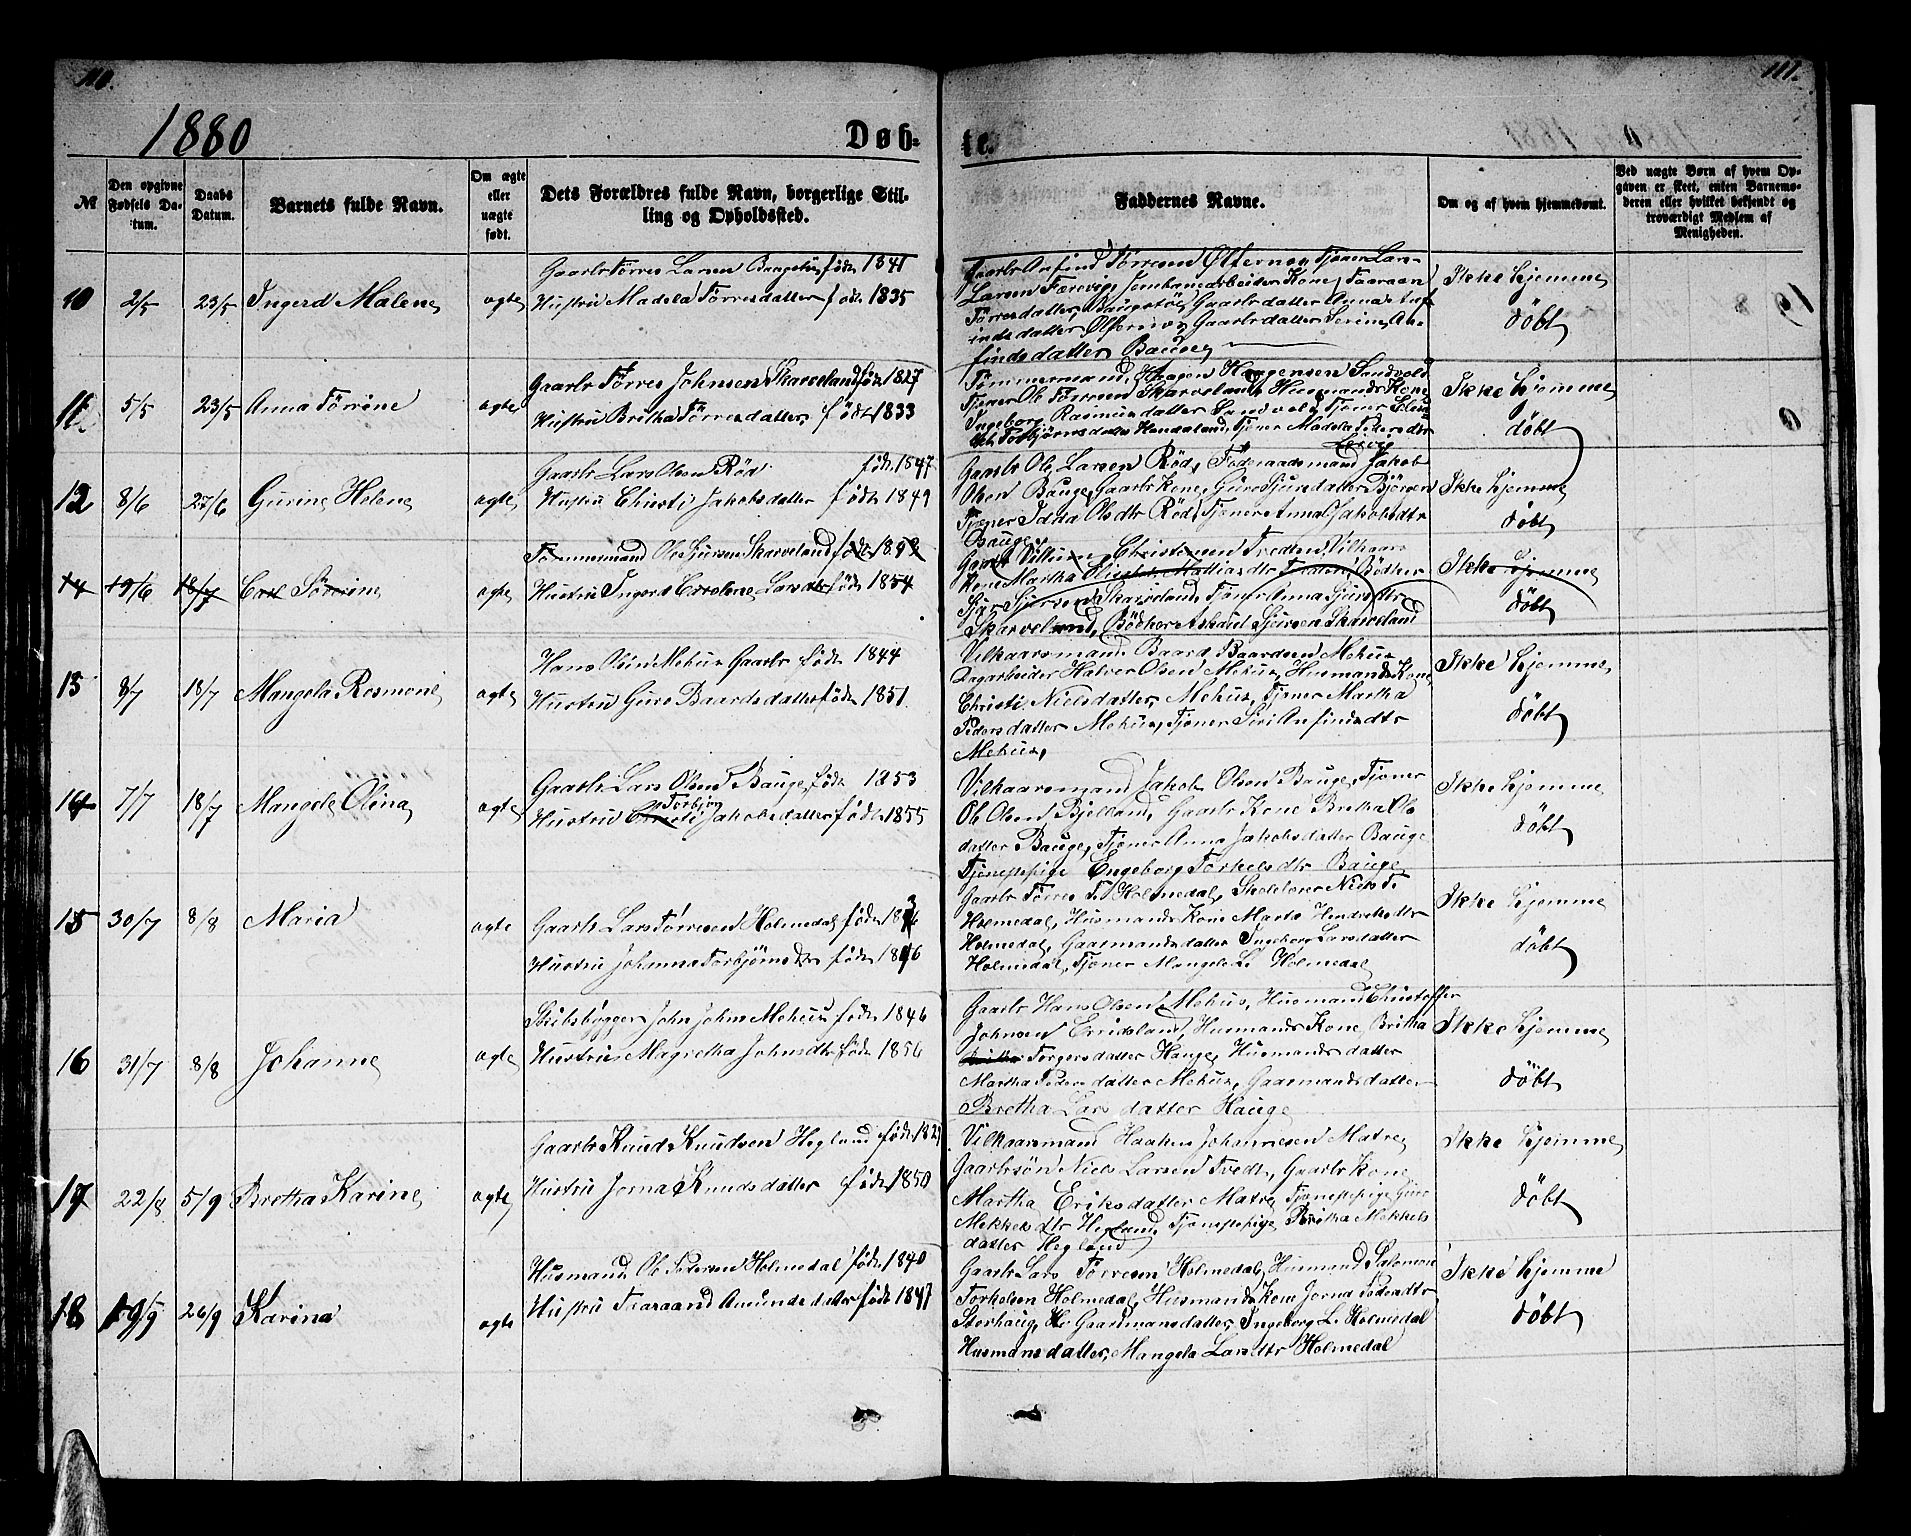 110.
111.
1880
Døb-
te.
№
Den opgivne Fødsels Datum.
Daabs Datum.
Barnets fulde Navn.
Om ægte eller uægte født.
Dets Forældres fulde Navn, borgerlige Stilling og Opholdssted.
Faddernes Navne.
Om og af hvem hjemmedøbt.
Ved uægte Børn af hvem Opgaven er skeet, enten Barnemoderen eller hvilket bekjendt og troværdigt Medlem af Menigheden.
10 2/5 23/5 Ingerd Malene ægte
Gaarbr Tørres Larsen Baugstøl født 1841
Hustru Madela Tørresdatter født 1835
Gaarbr Anfind Tørresen Ølfernes, Tjener Lars
Larsen Færevig, Jernbanearbeider Kone, Taaraan
Tørresdatter, Baugstøl, Gaardbrdatter Anna Anf
indsdatter Ølfernes, Gaarbrdatter Serine An
findsdatter Bauge
Ikke hjemme
døbt
11 5/5 23/5 Anna Tørrine ægte
Gaarbr Tørres Johnsen Skarveland født 1827
Hustru Britha Tørresdatter født 1833
Tømmermand Haagen Haagensen Sandvold
Tjener Ole Tørresen Skarveland, Husmands Kone
Ingeborg Rasmusdatter Sandvold, Tjener
Torbjørnsdatter Tjener Madela Pedersdtr
Ikke hjemme
døbt
12 8/6 27/6 Gurine Helene ægte
Gaarbr Lars Olsen Rød født 1847
Hustru Christi Jakobsdatter født 1849
Gaarbr Ole Larsen Rød, Føderaadsmand Jakob
Olsen Bauge, Gaarbr Kone, Guro Sjursdatter
Tjener Idaa Olsdtr Rød, Tjener Anna Jakobsdtr
Bauge
Ikke hjemme
døbt
14 19/6 18/7 Sørine ægte
Tømmermand Ole Sjursen Skarveland født
Hustru Ingerd Larsdtr født 1854
Gaarbr Villum Christensen Tredten, Vilkaars
Kone Martha Mattiasdtr Bødker
Sjur Sjursen Skarveland, Tjener Anna Sjursdtr
Skarveland, Bødker Sjursen Skarveland
Ikke hjemme
døbt
13 8/7 18/7 Mangela Rosmone ægte
Hans Olsen Mehus Gaarbr født 1844
Hustru Guro Baardsdatter født 1851
Vilkaarsmand Baard Baardsen Mehus
Dagarbeider Halver Olsen Mehus, Husmands Kone
Christi Nielsdatter, Mehus, Tjener Martha
Pedersdatter Mehus, Tjener Siri Anfindsdtr
Mehus,
Ikke hjemme
døbt
14 7/7 18/7 Mangele Olina ægte
Gaarbr Lars Olsen Bauge, født 1853
Torbjør
Hustru Christi Jakobsdatter født 1855
Vilkaarsmand Jakob Olsen Bauge, Tjener
Ole Olsen Bjelland, Gaarbr Kone Britha Ols
datter Bauge, Tjener Anna Jakobsdatter Bauge
Tjenestepige Engeborg Torkelsdtr Bauge
Ikke hjemme
døbt
15 30/7 8/8 Maria ægte
Gaarbr Lars Tørresen Holmedal født
Hustru Johanna Torbjørnsdtr født
Gaarbr Tørres T. Holmedal, Skolelærer Niels T.
Holmedal, Husmands Kone Marta Hendriksdtr
Holmedal, Gaarmandsdatter Ingeborg Larsdatter
Holmedal, Tjener Mangela L. Holmedal
Ikke hjemme
døbt
16 31/7 8/8 Johanne ægte
Skibsbygger John Johns Mehus født 1846
Hustru Magretha Johnsdtr født 1856
Gaarbr Hans Olsen Mehus, Husmand Christoffer
Johnsen Erridsland, Husmands Kone, Britha
Torgersdatter Hauge, Husmandsdatter
Martha Pedersdatter Mehus, Gaarmandsdatter
Bretha Larsdatter Hauge
Ikke hjemme
døbt
17 22/8 5/9 Bretha Karine ægte
Gaarbr Knud Knudsen Hegland født 182
Hustru Jorna Knudsdatter født 1850
Vilkaarsmand Haaken Johannesen Matre,
Gaarbrsøn Niels Larsen Tvedt, Gaarbr Kone
Martha Eriksdatter Matre, Tjenestepige Guro
Mekkelsdtr Hegland, Tjenestepige Britha Mekkels
datter Hegland
Ikke hjemme
døbt
18 19/9 26/9 Karina ægte
Husmand Ole Pedersen Holmedal født 1840
Hustru Taaraand Amundsdatter født 1847
Gaarbr Lars Tørresen Holmedal, Husmand Salomon
Torkelsen Holmedal, Husmands Kone Jorna Pedersdtr
Storhaug, Gaarmansdatter, Ingeborg L. Holmedal
Husmansdatter, Mangela Larsdtr Holmedal
Ikke hjemme
døbt